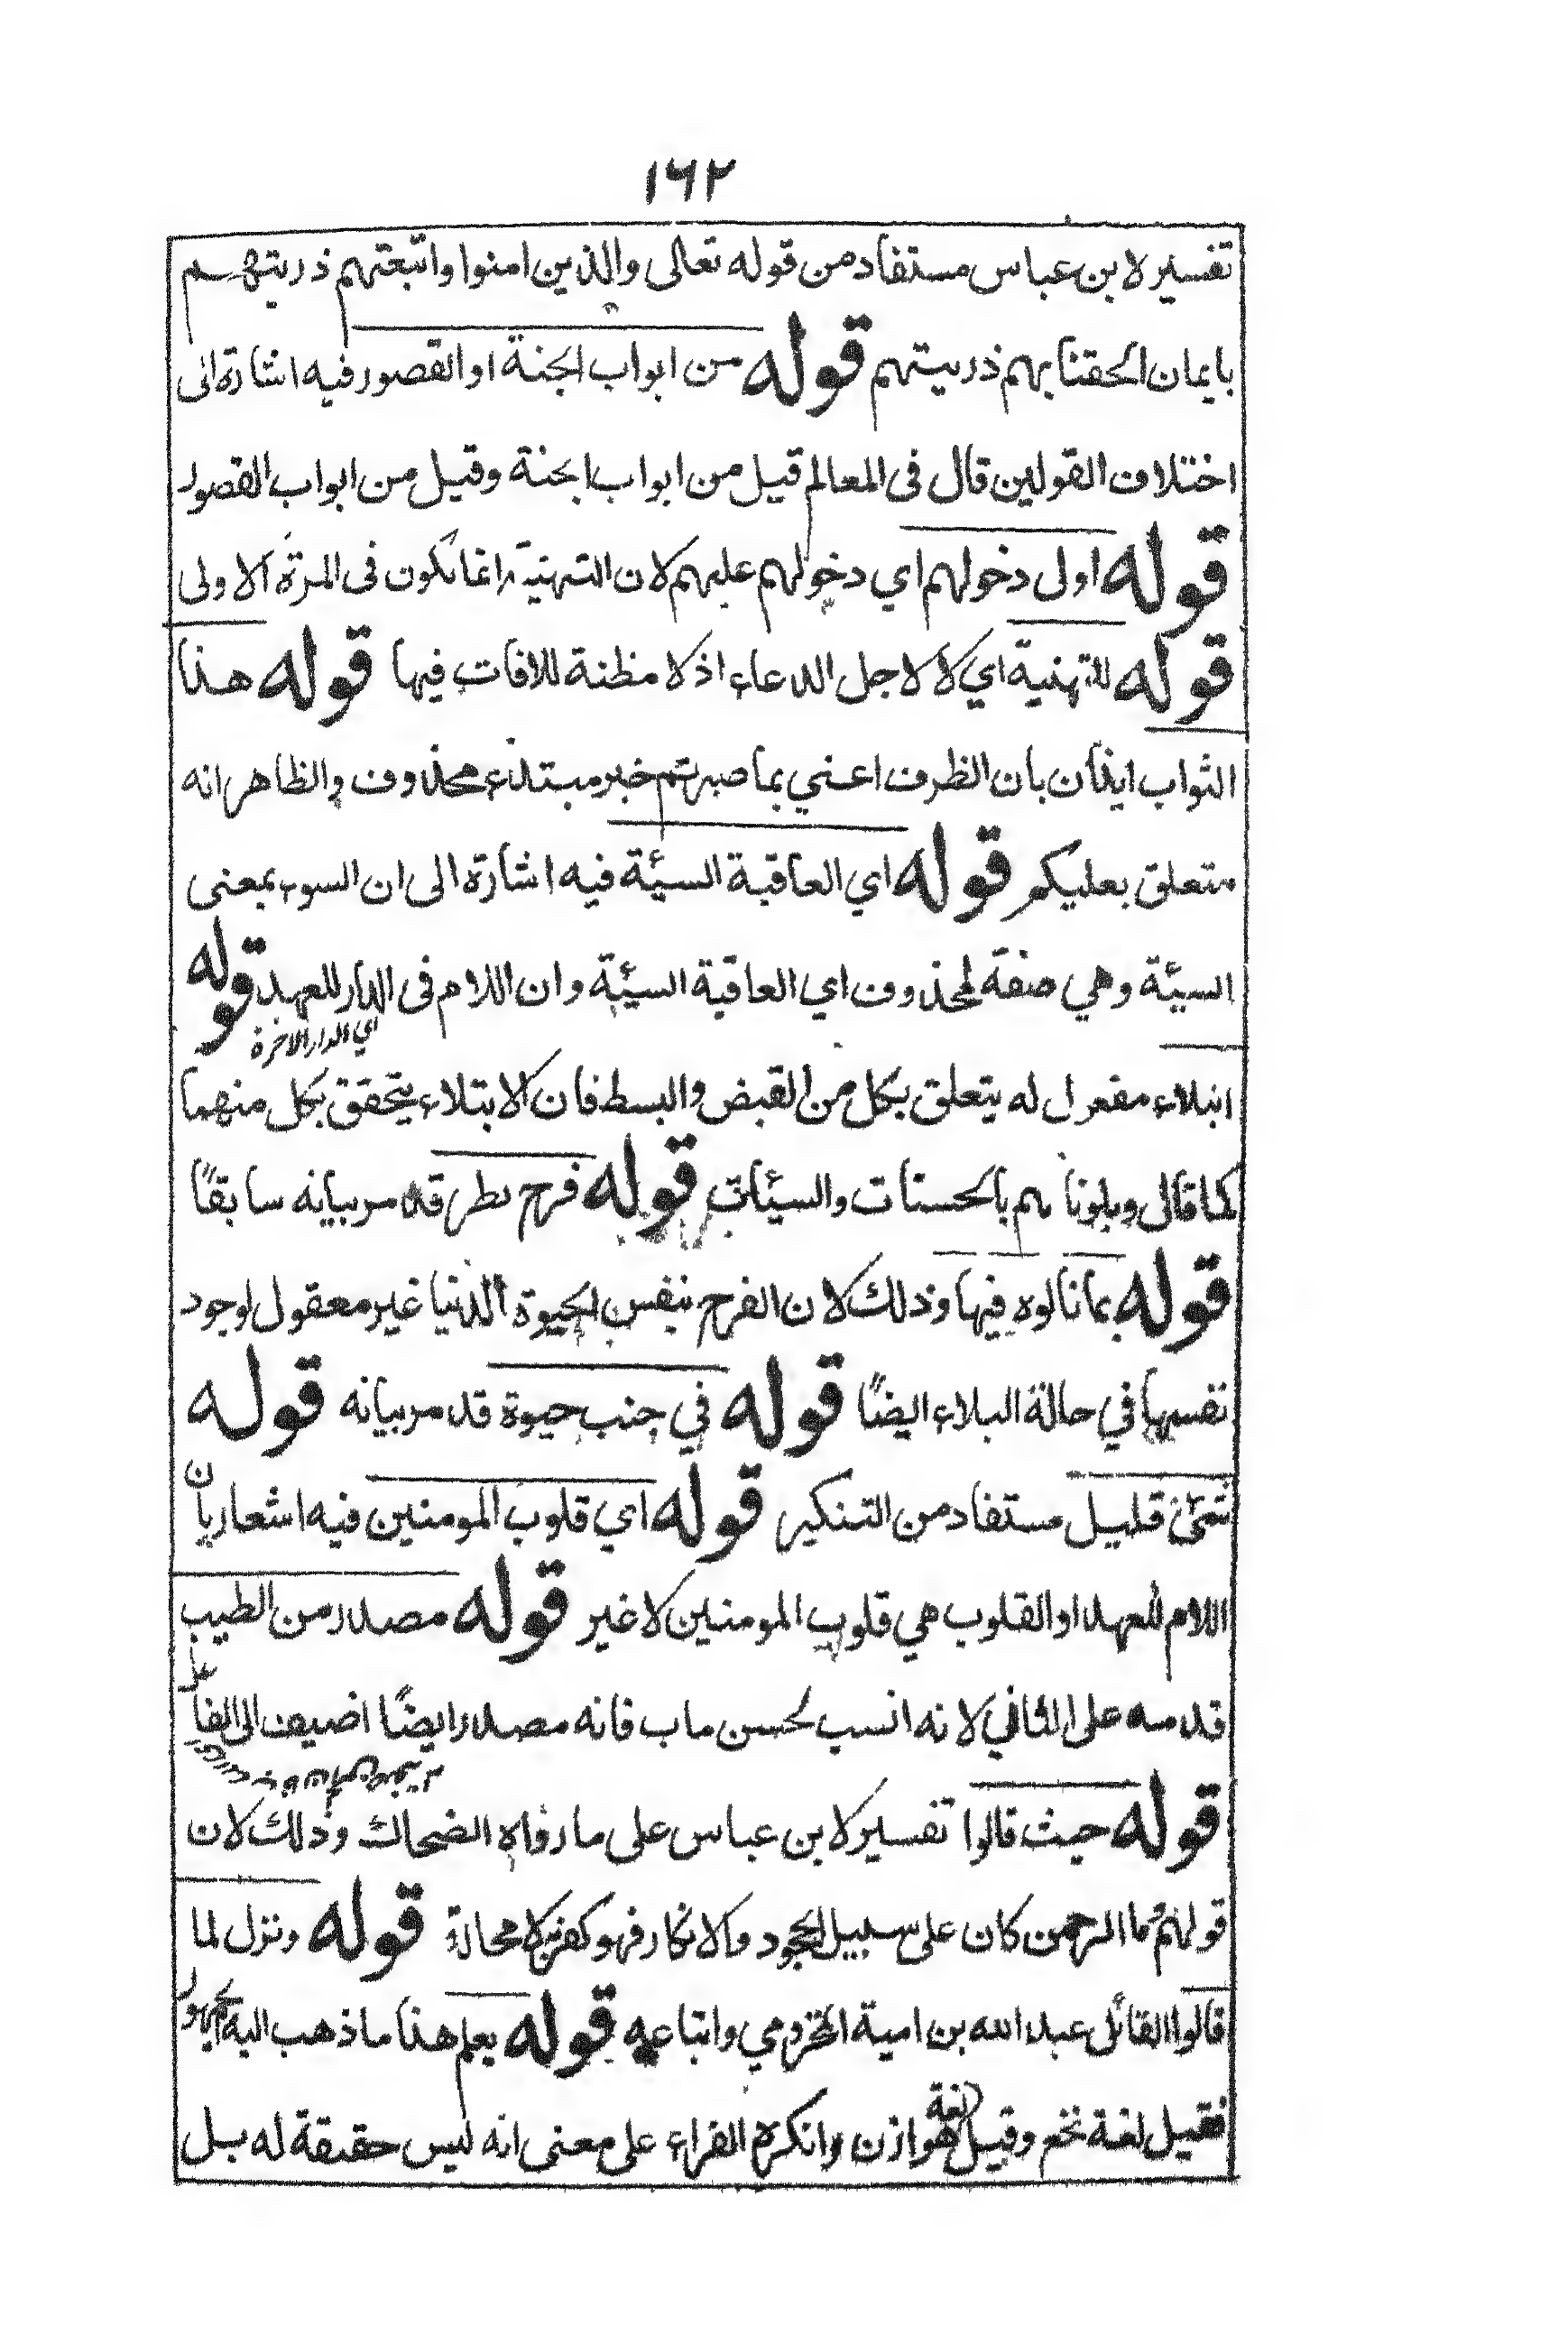 ١٦٢
تفسير لابن عباس مستفاد من قوله تعالى والذين امنوا واتبعتهم ذريتهم
بايمان الحقنا بهم ذريتهم قوله من ابواب الجنة او القصور فيه اشارة الى
اختلاف القولين قال فى المعالم قيل من ابواب الجنة وقيل من ابواب القصور
قوله اولى دخولهم اي دخولهم عليهم لان التهنية انما تكون فى المرة الاولى
قوله للتهنية اي لا لاجل الدعاء اذ لا مظنة للافات فيها قوله هذا
الثواب ايذان بان الظرف اعني بما صبرتم خبر مبتدء محذوف والظاهر انه
متعلق بعليكم قوله اي العاقبة السيئة فيه اشارة الى ان السوء بمعنى
السيئة وهي صفة لمحذوف اي العاقبة السيئة وان اللام فى الدار للعهد قوله
اي الدار الاخرة
ابتلاء مفعول له يتعلق بكل من القبض والبسط فان الابتلاء يتحقق بكل منهما
كما قال وبلونا هم بالحسنات والسيئات قوله فرح بطر قد مر بيانه سابقًا
قوله بما نالوه فيها وذلك لان الفرح بنفس الحيوة الدنيا غير معقول لوجود
نفسها في حالة البلاء ايضًا قوله في جنب حيوة قد مر بيانه قوله
شئ قليل مستفاد من التنكير قوله اي قلوب المومنين فيه اشعار بان
اللام للعهد او القلوب هي قلوب المومنين لا غير قوله مصدر من الطيب
قدمه على الثاني لانه انسب لحسن ماب فانه مصدر ايضًا اضيف الى الفاعل
قوله حيث قالوا تفسير لابن عباس على ما رواه الضحاك وذلك لان
قولهم وما الرحمن كان على سبيل الجحود والانكار فهو كفر لا محالة قوله ونزل لما
قالوا القائل عبد الله بن امية المخزومي واتباعه قوله يعلم هذا ما ذهب اليه الجمهور
فقيل لغة نخع وقيل لغة هوازن وانكره الفراء على معنى انه ليس حقيقة له بل